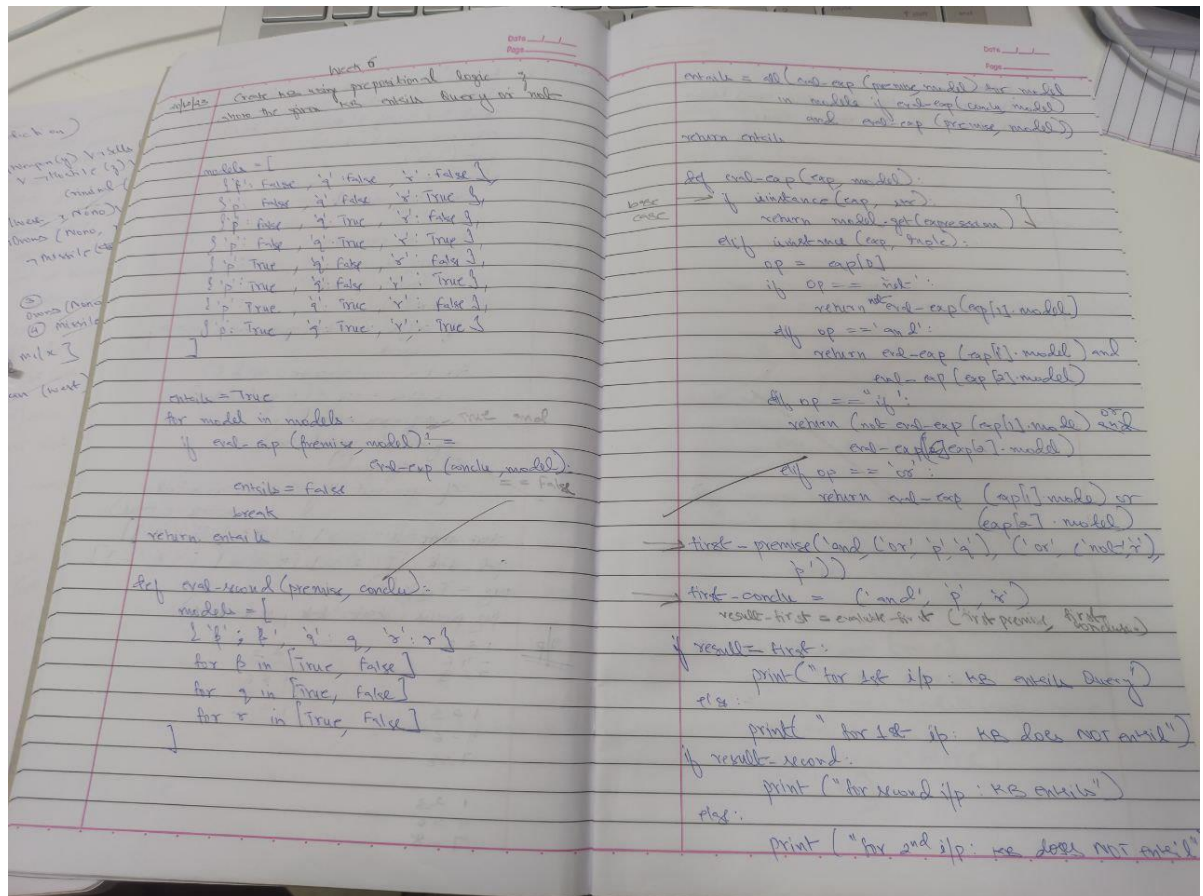 Date
Page
Week 6
Create KB using prepositional logic &
show the given KB entails Query or not
models = [
{'p': False, 'q': False, 'r': False},
{'p': False, 'q': False, 'r': True},
{'p': False, 'q': True, 'r': False},
{'p': False, 'q': True, 'r': True},
{'p': True, 'q': False, 'r': False},
{'p': True, 'q': False, 'r': True},
{'p': True, 'q': True, 'r': False},
{'p': True, 'q': True, 'r': True}
]
entails = True
for model in models:
== True and
if eval-exp (premise, model) ! =
eval-exp (conclu, model):
== False
entails = False
break
return entails
def eval-second (premise, conclu):
models = [
{'p': p, 'q': q, 'r': r}
for p in [True, False]
for q in [True, False]
for r in [True, False]
]
Date
Page
entails = all (eval-exp (premise, model) for model
in models if eval-exp (conclu, model)
and eval-exp (premise, model))
return entails
def eval-exp (exp, model):
base
case
if isinstance (exp, str):
return model.get(expression)
elif isinstance (exp, tuple):
op = exp[0]
if op == 'not':
return not eval-exp (exp[1].model)
elif op == 'and':
return eval-exp (exp[1].model) and
eval-exp (exp[2].model)
elif op == "if":
return (not eval-exp (exp[1].model) or
eval-exp (exp[2].model)
elif op == 'or':
return eval-exp (exp[1] model) or
(exp[2].model)
first-premise('and, ('or', 'p', 'q'), ('or', ('not', 'r'),
'p'))
first-conclu = ('and', 'p' 'r')
result-first = evaluate-first (first premise, first-conclusion)
if result= first:
print("for 1st i/p : KB entails Query")
else:
print(" for 1st i/p: KB does NOT entail")
if result-second:
print ("for second i/p : KB entails")
else:
print ("for 2nd i/p: KB does NOT entail"